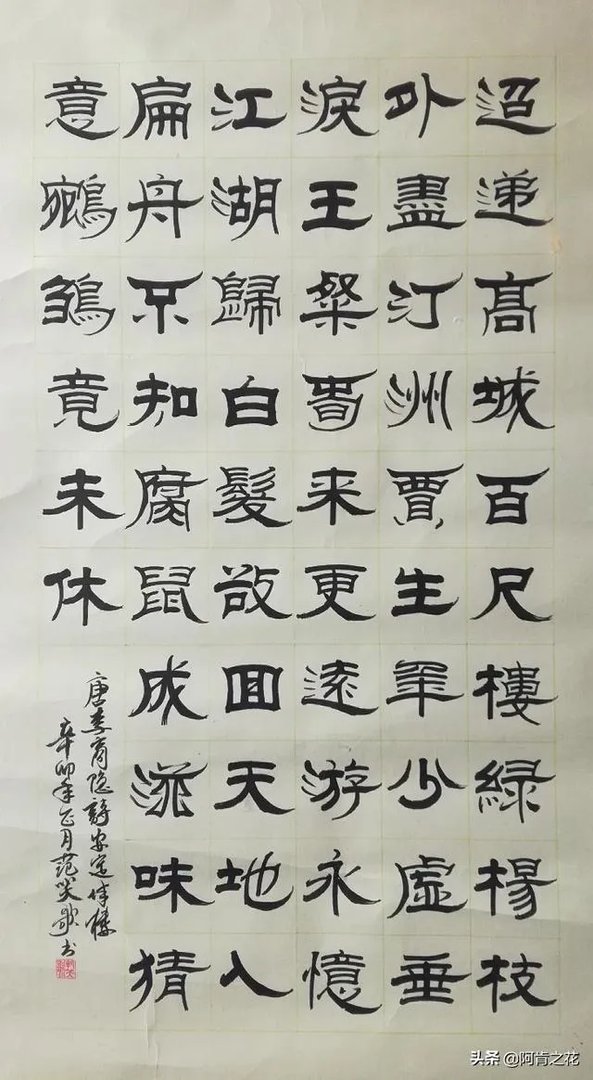 迢递高城百尺樓綠楊枝
外盡汀洲賈生年少虛垂
淚王粲春来更遠游永憶
江湖歸白髮欲回天地入
扁舟不知腐鼠成滋味猜
意鵷鶵竟未休
唐李商隐詩安定城楼
辛卯年正月范笑歌书
头条 @阿肯之花